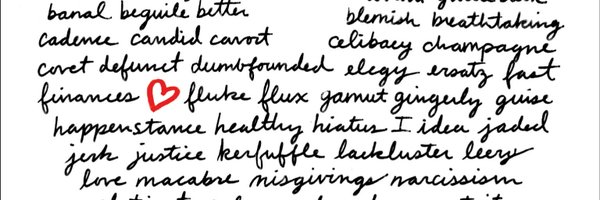 banal beguile better blemish breathtaking
cadence candid cavort celibacy champagne
covet defunct dumbfounded elegy ersatz fast
finances fluke flux gamut gingerly guise
happenstance healthy hiatus I idea jaded
jerk justice kerfuffle lackluster leery
love macabre misgivings narcissism